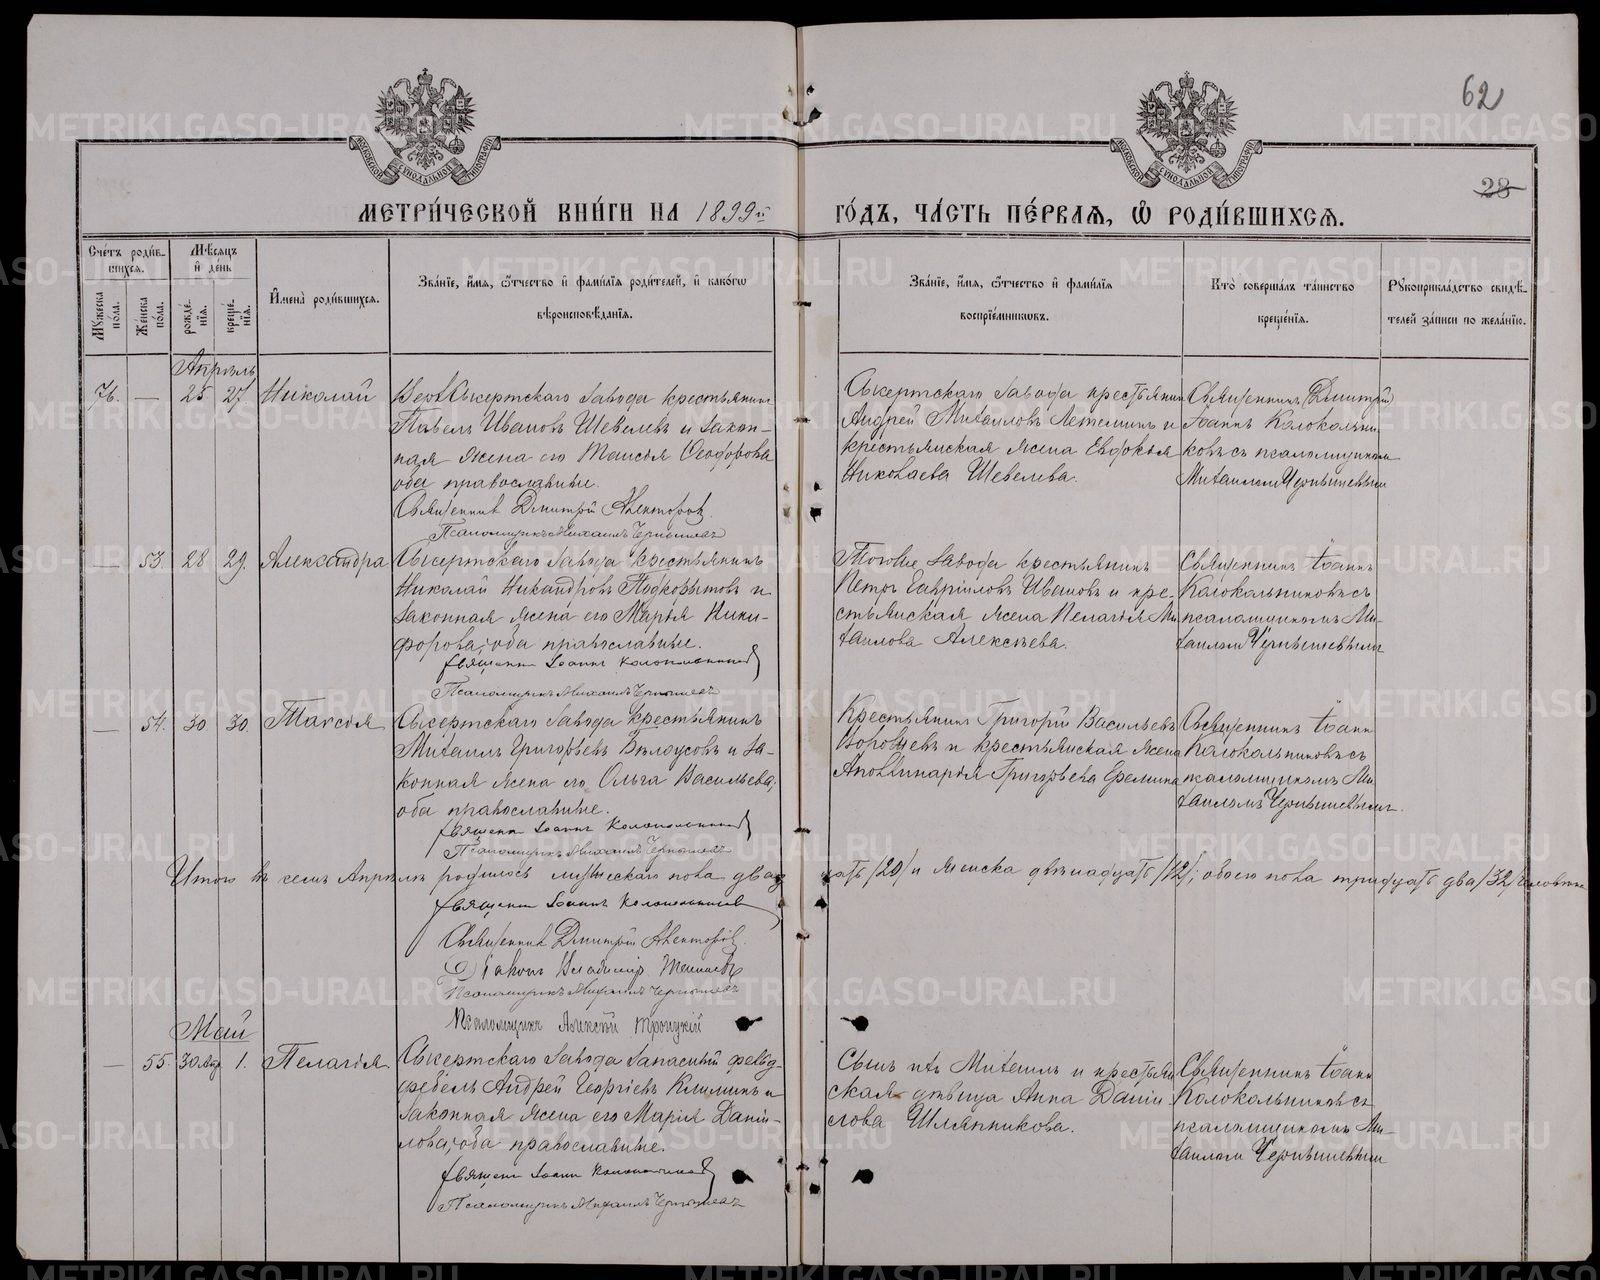 62
28
МОСКОВСКОЙ СѴНОДАЛЬНОЙ ТИПОГРАФІИ
МОСКОВСКОЙ СѴНОДАЛЬНОЙ ТИПОГРАФІИ
МЕТРИ́ЧЕСКОЙ КНИ́ГИ НА 1899й
ГО́ДЪ, ЧА́СТЬ ПЕ́РВАЯ, Ѡ РОДИ́ВШИХСЯ.
Сче́тъ роди́в-
шихся.
Мꙋ́жеска по́ла.
Же́нска по́ла.
Мѣ́сяцъ
и̑ де́нь
рожде́-
нія.
креще́-
нія.
И̑мена̀ роди́вшихся.
Зва́ніе, и̑́мя, ѻ̑́тчество и̑ фами́лія роди́телей, и̑ како́гѡ
вѣроисповѣ́данія.
Зва́ніе, и̑́мя, ѻ̑́тчество и̑ фами́лія
воспріе́мниковъ.
Кто̀ соверша́лъ та́инство
креще́нія.
Рꙋкоприкла́дство свидѣ́-
телей за́писи по жела́нію.
Апрѣль
76. — 25 27 Николай
Сысертскаго завода крестьянинъ
Павелъ Ивановъ Шевелевъ и закон-
ная жена его Таисія Ѳеодорова
оба православные.
Священникъ Дмитрій Авкторовъ
Псаломщикъ Михаилъ Чернышевъ
Сысертскаго завода крестьянинъ
Андрей Михаиловъ и
крестьянская жена Евдокія
Николаева Шевелева.
Священники Дмитрій
Іоаннъ Колокольни-
ковъ съ псаломщикомъ
Михаиломъ Чернышевымъ
— 53. 28 29. Александра
Сысертскаго завода крестьянинъ
Николай Никандровъ Подкорытовъ и
законная жена его Марія Ники-
форова, оба православные.
Священникъ Іоаннъ Колокольниковъ
Псаломщикъ Михаилъ Чернышевъ
Тогоже завода крестьянинъ
Петръ Гавріиловъ Ивановъ и кре-
стьянская жена Пелагія Ми-
хаилова Алексѣева.
Священникъ Іоаннъ
Колокольниковъ съ
псаломщикомъ Ми-
хаиломъ Чернышевымъ
— 54. 30. 30. Таисія
Сысертскаго завода крестьянинъ
Михаилъ Григорьевъ Бѣлоусовъ и за-
конная жена его Ольга Васильева,
оба православные.
Священникъ Іоаннъ Колокольниковъ
Псаломщикъ Михаилъ Чернышевъ
Крестьянинъ Григорій Васильевъ
и крестьянская жена
Аполлинарія Григорьева
Священникъ Іоаннъ
Колокольниковъ съ
псаломщикомъ Ми-
хаиломъ Чернышевымъ.
Итого въ семъ Апрѣлѣ родилось мужескаго пола двад цать /20/ и женска двѣнадцать /12/; обоего пола тридцать два /32/ человѣка
Священникъ Іоаннъ Колокольниковъ
Священникъ Дмитрій Авкторовъ.
Діаконъ Владиміръ
Псаломщикъ Михаилъ Чернышевъ
Псаломщикъ Алексѣй Троицкій
Май
— 55. 30 Апр 1. Пелагія
Сысертскаго завода запасный фельд-
фебель Андрей Георгіевъ Климинъ и
законная жена его Марія Даніи-
лова, оба православные.
Священникъ Іоаннъ Колокольниковъ
Псаломщикъ Михаилъ Чернышевъ
Сынъ ихъ Михаилъ и крестьян-
ская дѣвица Анна Даніи-
лова Шляпникова.
Священникъ Іоаннъ
Колокольниковъ съ
псаломщикомъ Ми-
хаиломъ Чернышевымъ
METRIKI.GASO-URAL.RU